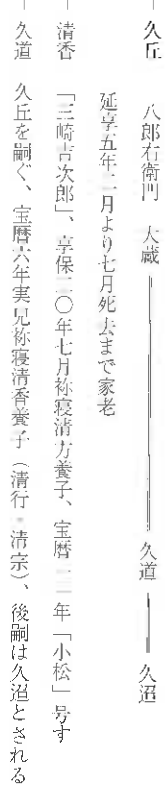 久丘 八郎右衛門 大蔵 ─ 久道 ─ 久沼
延享五年二月より七月死去まで家老
清香 「三崎吉次郎」、享保二〇年七月祢寝清方養子、宝暦一二年「小松」号す
久道 久丘を嗣ぐ、宝暦六年実兄祢寝清香養子（清行・清宗）、後嗣は久沼とされる